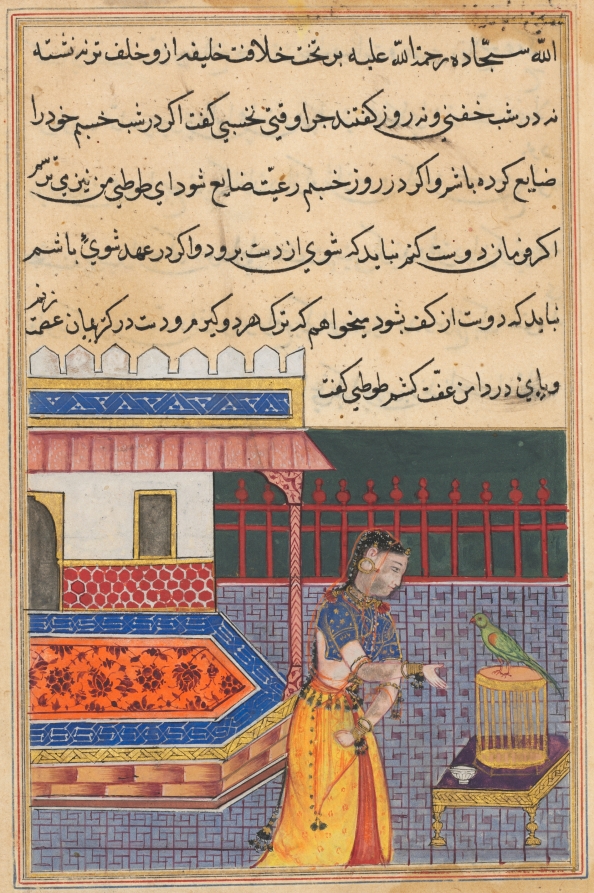 الله سجاده رحمة الله علیه بر تخت خلافت خلیفه از و خلف تر ننشسته
نه در شب خفتی و نه روز گفتند چرا وقتی نخسپی گفت اگر در شب خسپم خود را
ضایع کرده باشم و اگر در روز خسپم رعیّت ضایع شود ای طوطی من نیز می ترسم
اگر فرمان دوست کنم نباید که شوی از دست برود و اگر در عهد شوی باشم
نباید که دوست از کف بشود میخواهم که ترک هر دو گیرم و دست در گریبان عصمت زنم
و پای در دامن عفّت کشم طوطی گفت